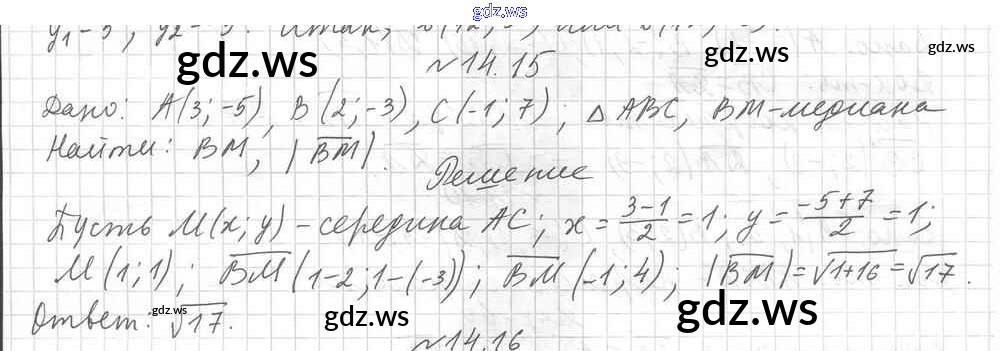 gdz.ws
gdz.ws
gdz.ws
№14.15
Дано: A(3;-5), B(2;-3), C(-1;7); △ABC, BM-медиана
Найти: BM, |BM|.
Решение
Пусть M(x;y)-середина AC; x = (3-1)/2 = 1; y = (-5+7)/2 = 1;
M(1;1); BM(1-2;1-(-3)); BM(-1;4); |BM|=√1+16=√17.
Ответ: √17.
gdz.ws
gdz.ws
gdz.ws
№14.16